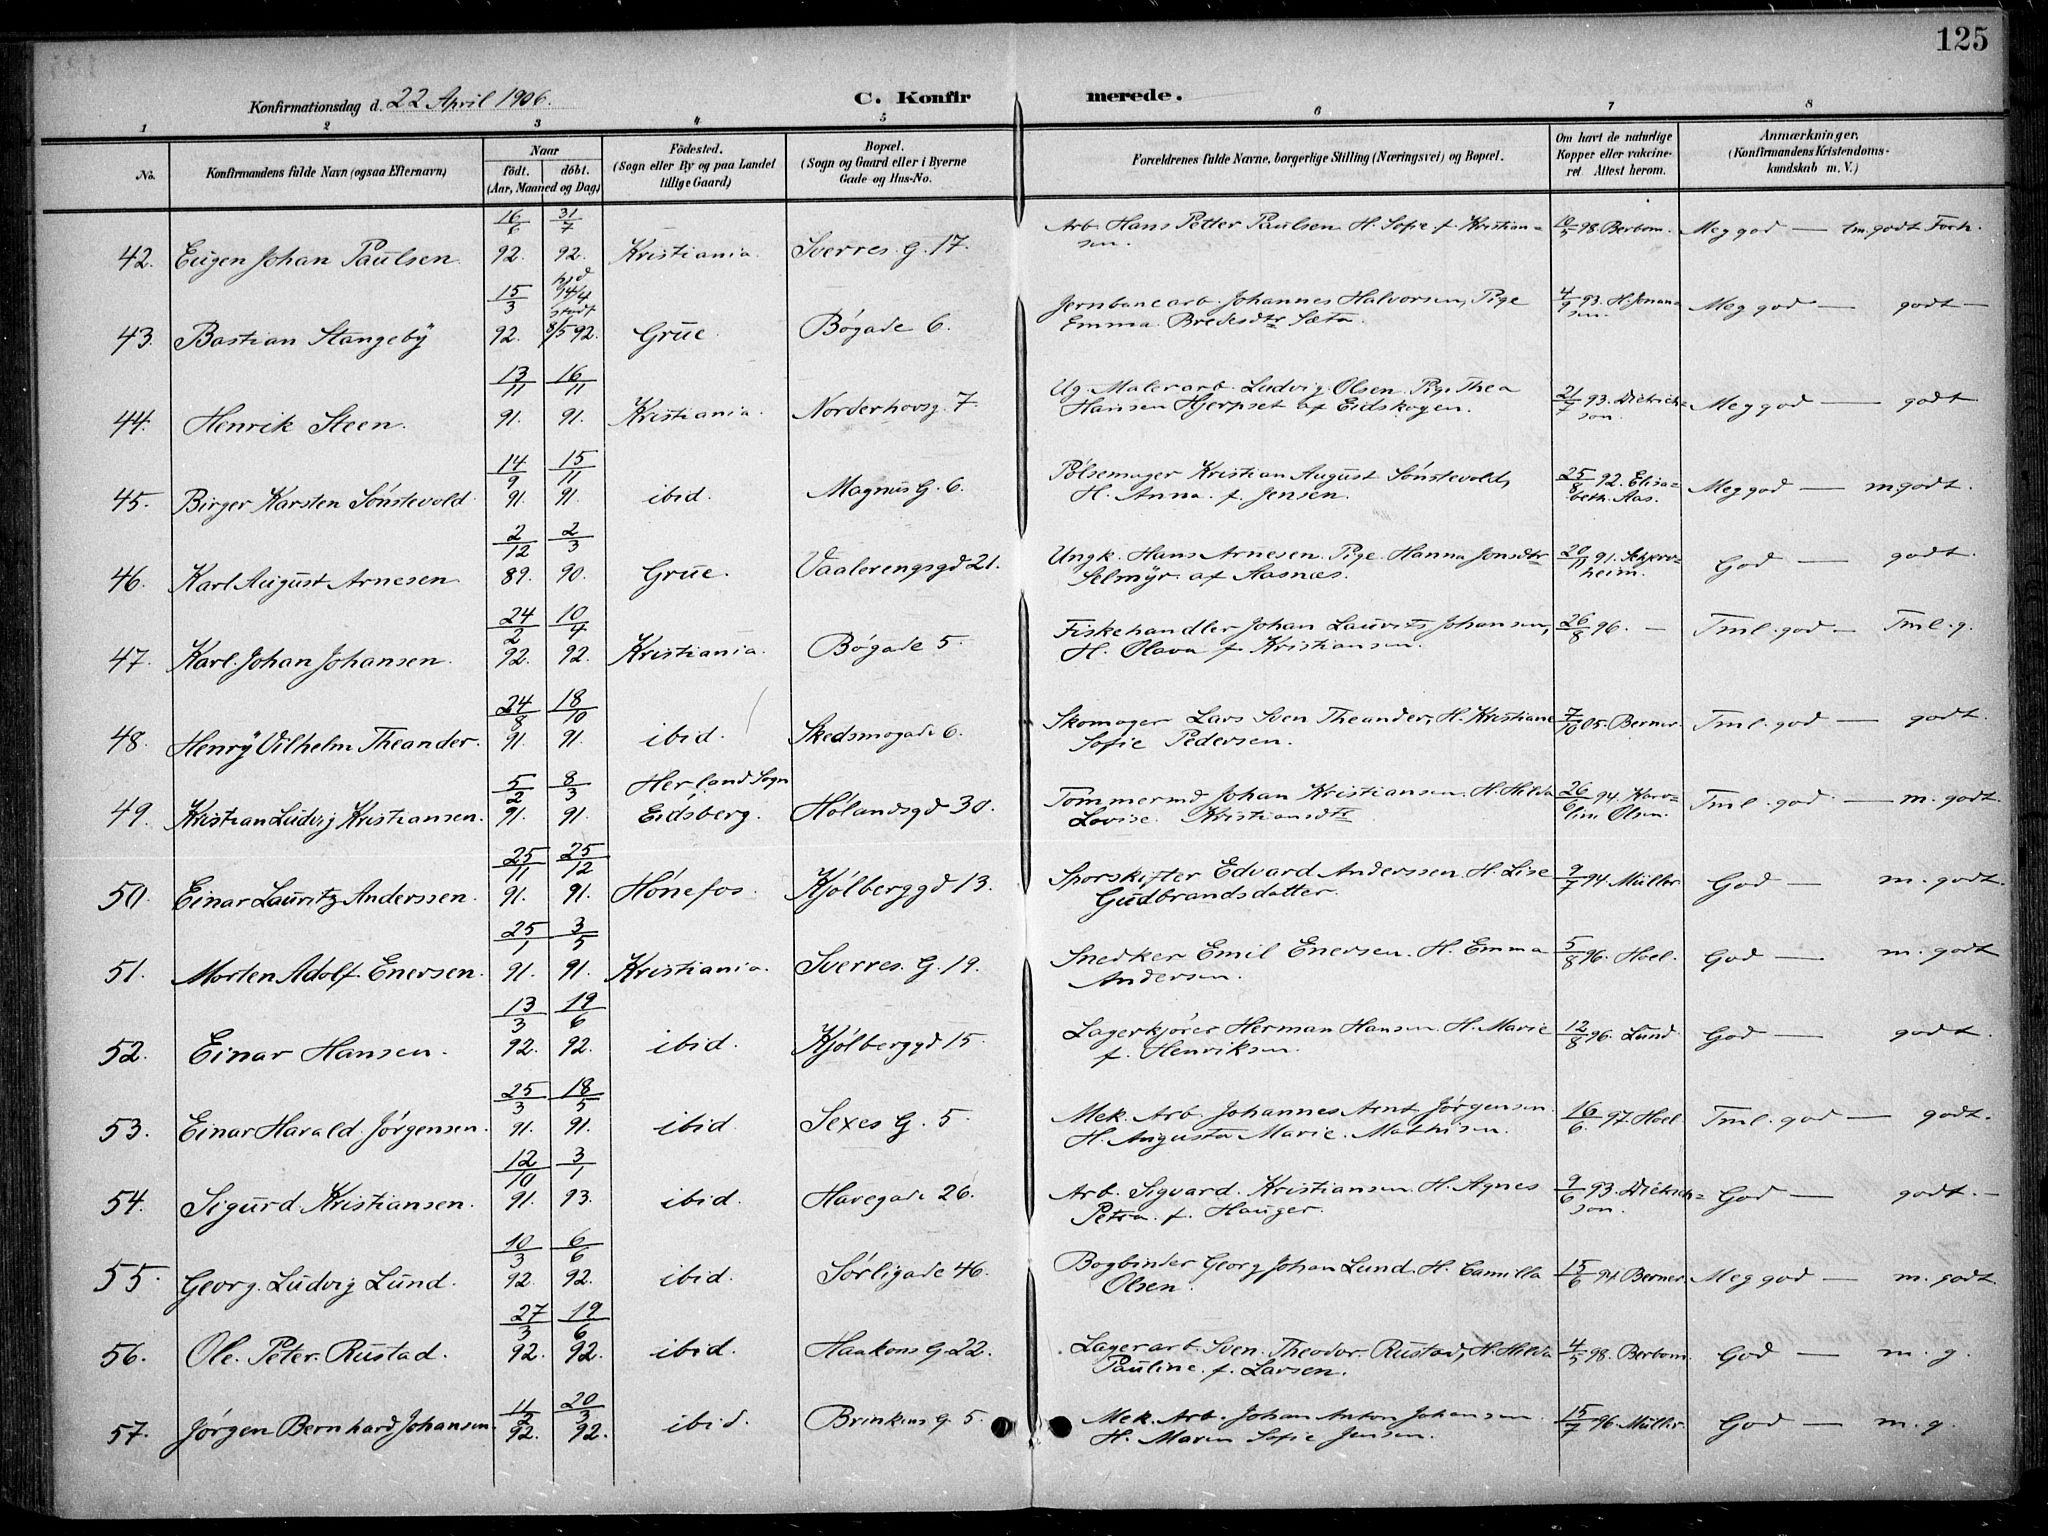 125
Konfirmationsdag d. 22 April 1906.
C. Konfirmerede.
1 2 3 4 5 6 7 8
No.
Konfirmandens fulde Navn (ogsaa Efternavn)
Naar
født. døbt.
(Aar, Maaned og Dag)
Fødested.
(Sogn eller By og paa Landet
tillige Gaard)
Bopæl.
(Sogn og Gaard eller i Byerne
Gade og Hus-No.
Forældrenes fulde Navne, borgerlige Stilling (Næringsvei) og Bopæl.
Om havt de naturlige
Kopper eller vakcine-
ret. Attest herom.
Anmærkninger.
(Konfirmandens Kristendoms-
kundskab m. V.)
16/6 31/7 Arb. Hans Petter Paulsen H. Sofie f. Kristian=
42. Eugen Johan Paulsen. 92. 92. Kristiania. Sverres. G. 17. sen. 10/5 98. Berbom. Meg god — tm. godt Forh.
15/3 hjd 14/4 stadf. Jernbanearb. Johannes Halvorsen, Pige 4/9 93. H. Jonan=
43. Bastian Stangeby 92. 8/5 92. Grue Bøgade 6. Emma Bredesdtr Sæta. sen. Meg god — godt —
13/11 16/11 Ug. Malerarb. Ludvig Olsen. Pige Thea 21/7 93. Dietrich=
44. Henrik Steen. 91. 91. Kristiania. Norderhovsg. 7 Hansen Hjerpset af Eidskogen. son. Meg god — godt.
14/9 15/11 Pølsemager Kristian August Sønstevold, 25/8 92. Elisa=
45. Birger Karsten Sønstevold 91. 91. ibid. Magnus G. 6. H. Anna f. Jensen. beth. Aas. Meg god — m godt.
2/12 2/3 Ungk. Hans Arnesen. Pige Hanna Jonsdtr
46. Karl August Arnesen 89. 90. Grue. Vaalerengsgd 21. Selmyr af Aasnæs. 20/11 91. heim. God — godt.
24/2 10/4 Fiskehandler Johan Laurits Johansen,
47. Karl Johan Johansen. 92. 92. Kristiania. Bøgade 5. H. Olava f. Kristiansen. 26/8 96. — Tml. god — Tml. g.
24/8 18/10 Skomager Lars Sven Theander, H. Kristiane
48. Henry Vilhelm Theander. 91. 91. ibid. Skedsmogade 6. Sofie Pedersen. 7/10 05. Berner. Tml. god — godt.
5/2 8/3 Herland Sogn Tømmermd Johan Kristiansen. H. Hilda 26/6 94. Karo=
49. Kristian Ludvig Kristiansen. 91. 91. Eidsberg. Hølandsgd 30. Lovise Kristiansdtr line Olsen. Tml. god — m. godt.
25/11 25/12 Sporskifter Edvard Anderssen. H. Lise
50. Einar Lauritz Anderssen. 91. 91. Hønefos. Kjølberggd 13. Gudbrandsdatter. 9/7 94 Müller God — m. godt.
25/1 3/5 Snedker Emil Enersen. H. Emma
51. Morten Adolf Enersen. 91. 91. Kristiania. Sverres. G. 19. Andersen. 5/8 96. Hoel. God — m. godt
13/3 19/6 Lagerkjører Herman Hansen. H. Marie
52. Einar Hansen. 92. 92. ibid. Kjølberggd 15. f. Henriksen. 12/8 96. Lund. God — godt.
25/3 18/5 Mek. Arb. Johannes Arnt Jørgensen.
53. Einar Harald Jørgensen. 91. 91. ibid. Sexes G. 5 H. Augusta Marie Mathisen. 16/6 97. Hoel Tml. god — godt.
12/10 3/1 Arb. Sigvard Kristiansen. H. Agnes 9/6 93. Dietrich=
54. Sigurd Kristiansen. 91. 93. ibid. Havegade 26. Petra f. Hauger. son. God — godt. —
10/3 6/6 Bogbinder Georg Johan Lund. H. Camilla
55. Georg. Ludvig Lund. 92. 92. ibid. Sørligade 46. Olsen. 15/6 94 Berner. Meg god — m. godt.
27/3 19/6 Lagerarb. Sven Theodor Rustad, H. Hilda
56. Ole Peter Rustad. 92. 92. ibid. Haakons G. 22. Pauline f. Larsen. 4/5 98. Berbom. God — m. g.
11/2 20/3 Mek. Arb. Johan Anton Johansen.
57. Jørgen Bernhard Johansen. 92. 92. ibid. Brinkens G. 5. H. Maren Sofie Jensen. 15/7 96. Müller. God — m. g.